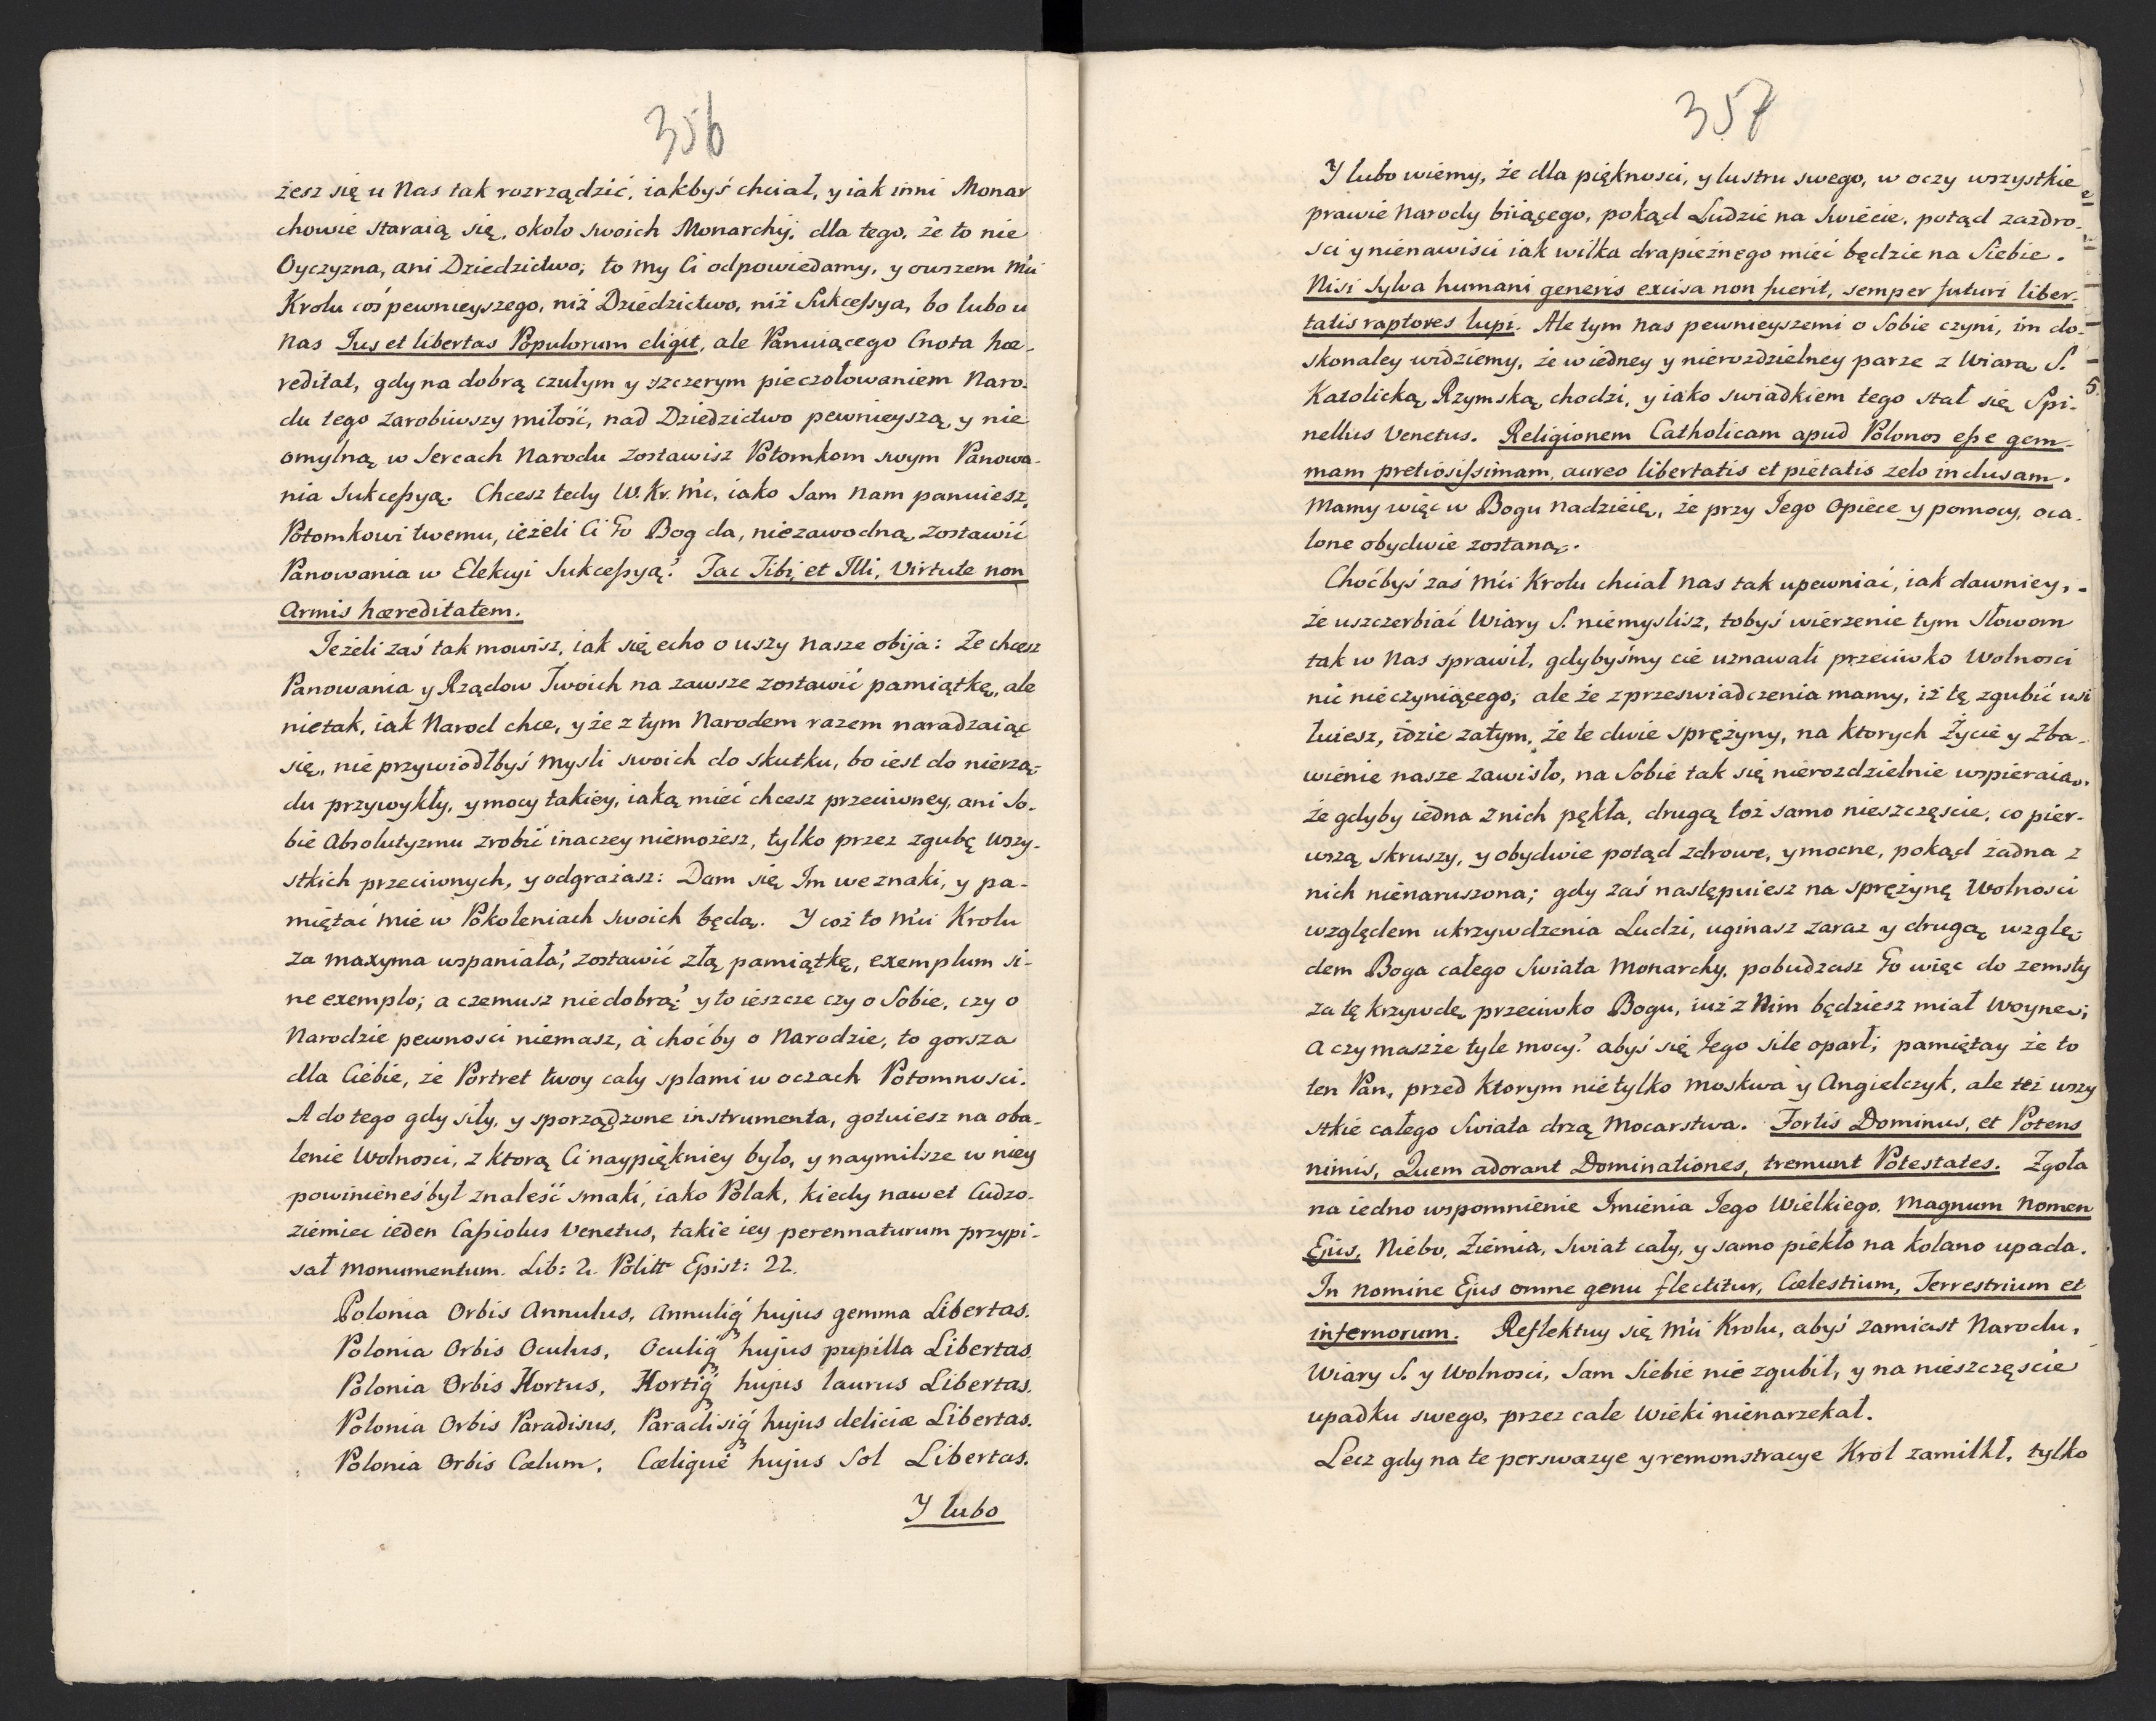 356
żesz się u Nas tak rozrządzić, iakbyś chciał, y iak inni Monar
chowie staraią się, około swoich Monarchÿ, dla tego, że to nie
Oyczyzna, ani Dziedzictwo; to My Ci odpowiedamy, y owszem Mci
Krolu coś pewnieyszego, niż Dziedzictwo, niż Sukceſsya, bo lubo u
Nas Jus et libertas Populorum eligit, ale Panuiącego Cnota hæ-
reditat, gdy na dobrą czułym y szczerym pieczołowaniem Naro-
du tego zarobiwszy miłość, nad Dziedzictwo pewnieyszą, y nie
omylną w Sercach Narodu zostawisz Potomkom swym Panowa-
nia Sukceſsyą. Chcesz tedy W. Kr. Mc, iako Sam Nam panuiesz,
Potomkowi twemu, ieżeli Ci Go Bog da, niezawodną zostawić
Panowania w Elekcyi Sukceſsyą? Fac Tibi et Illi, Virtute non
Armis hæreditatem.
Jeżeli zaś tak mowisz, iak się echo o uszy nasze obija: Że chcesz
Panowania y Rządow Twoich na zawsze zostawić pamiątkę, ale
nietak, iak Narod chce, y że z tym Narodem razem naradzaiąc
się, nie przywiodłbyś Mysli swoich do skutku, bo iest do nierzą-
du przywykły, y mocy takiey, iaką mieć chcesz przeciwney, ani So-
bie Absolutyzmu zrobić inaczey niemożesz, tylko przez zgubę wszy-
stkich przeciwnych, y odgrażasz: Dam się Im we znaki, y pa-
miętać mie w Pokoleniach swoich będą. Y coż to Mci Krolu
za maxyma wspaniała? zostawić złą pamiątkę, exemplum si-
ne exemplo; a czemusz niedobrą? y to ieszcze czy o Sobie, czy o
Narodzie pewności niemasz, a choćby o Narodzie, to gorsza
dla Ciebie, że Portret twoy cały splami w oczach Potomności.
A do tego gdy siły, y sporządzone instrumenta, gotuiesz na oba-
lenie Wolności, z ktorą Ci naypiękniey było, y naymilsze w niey
powinieneś był znaleść smaki, iako Polak, kiedy nawet Cudzo-
ziemiec ieden Caſsiolus Venetus, takie iey perennaturum przypi-
sał Monumentum. Lib: 2. Politt Epist: 22.
Polonia Orbis Annulus, Annuliq hujus gemma Libertas.
Polonia Orbis Oculus, Oculiq hujus pupilla Libertas.
Polonia Orbis Hortus, Hortiq hujus laurus Libertas.
Polonia Orbis Paradisus, Paradisiq hujus deliciæ Libertas.
Polonia Orbis Cælum, Cæliquè hujus Sol Libertas.
Y lubo
357
Y lubo wiemy, że dla piękności, y lustru swego, w oczy wszystkie
prawie Narody biiącego, pokąd Ludzie na Świecie, potąd zazdro-
ści y nienawiści iak wilka drapieżnego mieć będzie na Siebie.
Nisi Sylva humani generis excisa non fuerit, semper futuri liber-
tatis raptores lupi. Ale tym Nas pewnieyszemi o Sobie czyni, im do-
skonaley widziemy, że w iedney y nierozdzielney parze z Wiarą S.
Katolicką, Rzymską, chodzi, y iako swiadkiem tego stał się Spi-
nellus Venetus. Religionem Catholicam apud Polonos eſse gem-
mam pretiosiſsimam, aureo libertatis et pietatis zelo inclusam.
Mamy więc w Bogu nadzieię, że przy Jego Opiece y pomocy, oca-
lone obydwie zostaną.
Choćbyś zaś Mci Krolu chciał nas tak upewniać, iak dawniey,
że uszczerbiać Wiary S. niemyslisz, tobyś wierzenie tym Słowom
tak w Nas sprawił, gdybyśmy cie uznawali przeciwko Wolnosci
nic nieczyniącego; ale że z przeswiadczenia mamy, iż tę zgubić usi
łuiesz, idzie zatym, że te dwie sprężyny, na ktorych Życie y Zba-
wienie nasze zawisło, na Sobie tak się nierozdzielnie wspieraią,
że gdyby iedna z nich pękła, drugą toż samo nieszczęscie, co pier-
wszą, skruszy, y obydwie potąd zdrowe, y mocne, pokąd żadna z
nich nienaruszona; gdy zaś następuiesz na sprężynę Wolnosci
względem ukrzywdzenia Ludzi, uginasz zaraz y drugą, wzglę-
dem Boga całego Swiata Monarchy, pobudzasz Go więc do zemsty
za tę krzywdę, przeciwko Bogu, iuż z Nim będziesz miał Woynę;
A czy maszże tyle mocy? abyś się Jego sile oparł; pamiętay że to
ten Pan, przed ktorym nietylko Moskwa y Angielczyk, ale też wszy
stkie całego Swiata drzą Mocarstwa. Fortis Dominus, et Potens
nimis, Quem adorant Dominationes, tremunt Potestates. Zgoła
na iedno wspomnienie Imienia Jego Wielkiego, Magnum Nomen
Ejus, Niebo, Ziemia, Swiat cały, y samo piekło na kolano upada.
In Nomine Ejus omne genu flectitur, Cælestium, Terrestrium et
infernorum. Reflektuy się Mci Krolu, abyś zamiast Narodu,
Wiary S. y Wolnosci, Sam Siebie nie zgubił, y na nieszczęscie
upadku swego, przez całe Wieki nienarzekał.
Lecz gdy na te perswazye y remonstracye Krol zamilkł, tylko